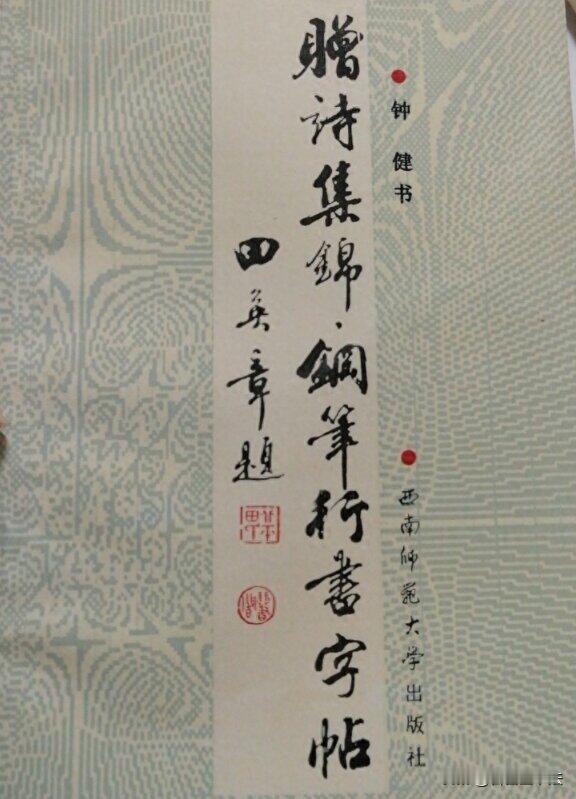 钟健书
西南师范大学出版社
贈詩集錦·鋼筆行書字帖
田英章題